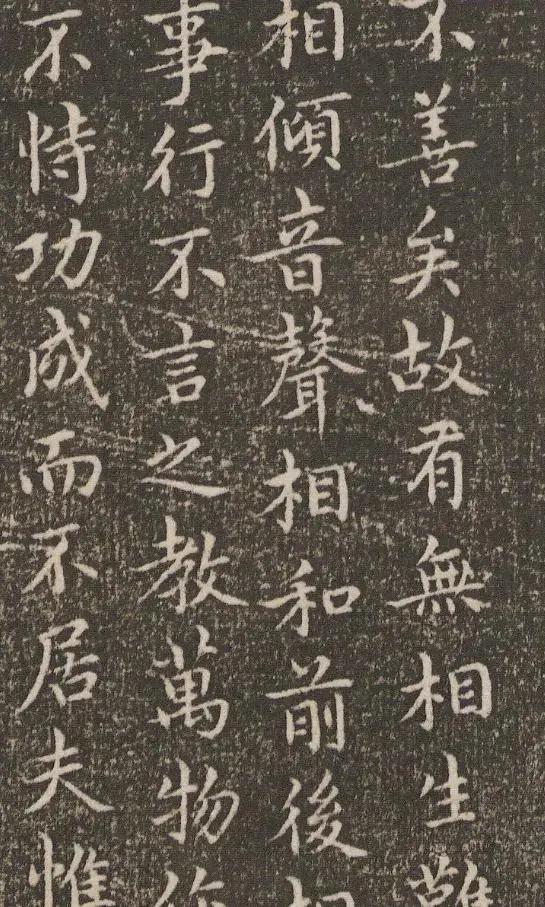 不善矣故有無相生難
相傾音聲相和前後相
事行不言之教萬物作
不恃功成而不居夫惟